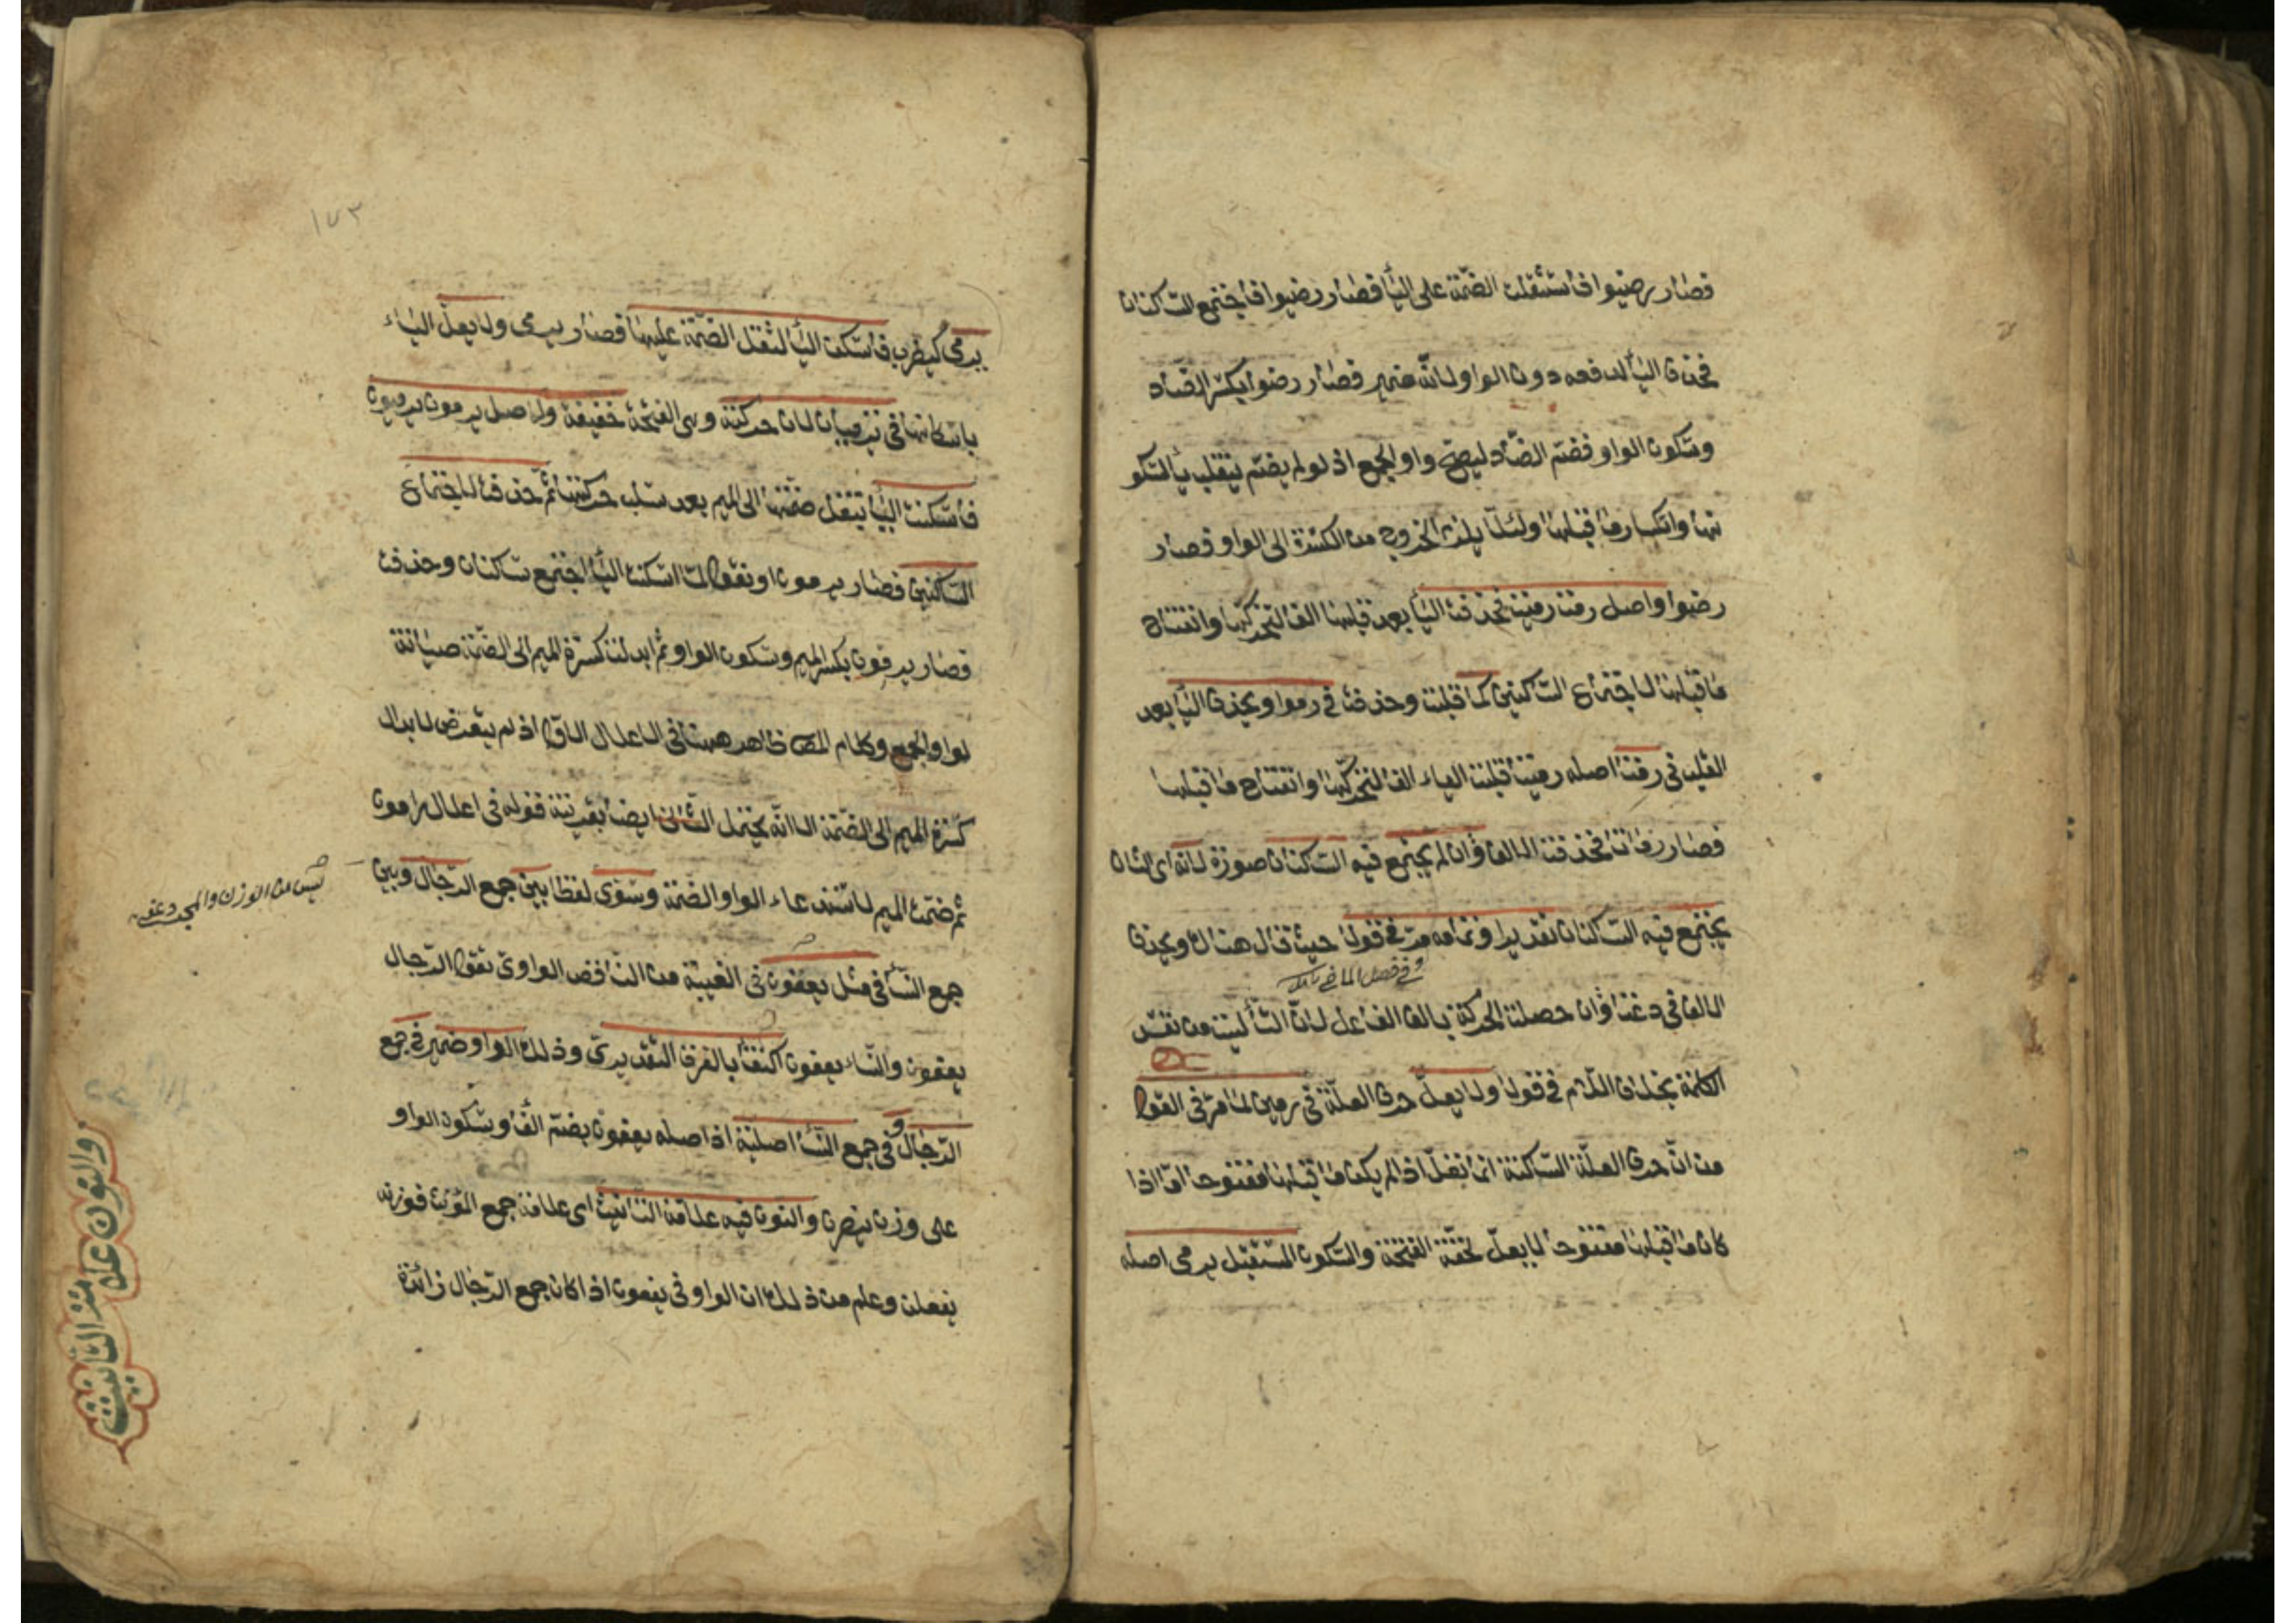 فصار رضيوا فاستثقلت الضمة على الياء فصار رضيوا فاجتمع الساكنان
فحذف الياء لدفعه دون الواو لانه ضمير فصار رضوا بكسر الضاد
وسكون الواو فضم الضاد ليصح واو الجمع اذ لو لم يضم ينقلب ياء لسكو
نها وانكسار ما قبلها ولئلا يلزم الخروج من الكسرة الى الواو فصار
رضوا واصل رمت رميت فحذفت الياء بعد قلبها الفا لتحركها وانفتاح
ما قبلها لاجتماع الساكنين كما قبلت وحذفت في رموا ويحذف الياء بعد
القلب في رمتا اصله رميتا قلبت الياء الفا لتحركها وانفتاح ما قبلها
فصار رماتا فحذفت الالف وان لم يجتمع فيه الساكنان صورة لانه اى الشان
يجتمع فيه الساكنان تقديرا وتمامه مر في قولنا حيث قال هناك ويحذف
وفي فصل الماضي
الالف في دعتا وان حصلت الحركة بالف الفاعل لان التاء ليست من نفس
الكلمة بخلاف اللام في قولا ولا يعل حرف العلة في رمين لما مر في القول
من ان حرف العلة الساكنة انما تعل اذا لم يكن ما قبلها مفتوحا اما اذا
كان ما قبلها مفتوحا لا يعل لخفة الفتحة والسكون المستقبل يرمى اصله
١٧٣
يرمى كيضرب فاسكنت الياء لثقل الضمة عليها فصار يرمى ولا يعل الياء
باسكانها في يرميان لان حركته وهى الفتحة خفيفة واصل يرمون يرميون
فاسكنت الياء بنقل ضمتها الى الميم بعد سلب حركتها ثم حذفت لاجتماع
الساكنين فصار يرمون او نقول لما اسكنت الياء اجتمع ساكنان وحذفت
فصار يرمون بكسر الميم وسكون الواو ثم ابدلت كسرة الميم الى الضمة صيانة
لواو الجمع وكلام المص ظاهر ههنا في الاعلال الاول اذ لم يتعرض لابدال
كسرة الميم الى الضمة الا انه يحتمل الثانى ايضا بقرينة قوله في اعلال رامون
ثم ضمت الميم لاستدعاء الواو الضمة وسوى لفظا بين جمع الرجال وبين
ليس من الوزن والمجرد
جمع النساء في مثل يعفون في الغيبة من الناقص الواوى تقول الرجال
يعفون والنساء يعفون اكتفاء بالفرق التقديرى وذلك الواو ضمير في جمع
الرجال و في جمع النساء اصلية اذ اصله يعفون بضم الفاء وسكون الواو
على وزن ينصرن والنون فيه علامة التانيث اى علامة جمع المؤنث فوزنه
يفعلن وعلم من ذلك ان الواو في يعفون اذا كان جمع الرجال زائدة
والنون علامة التانيث